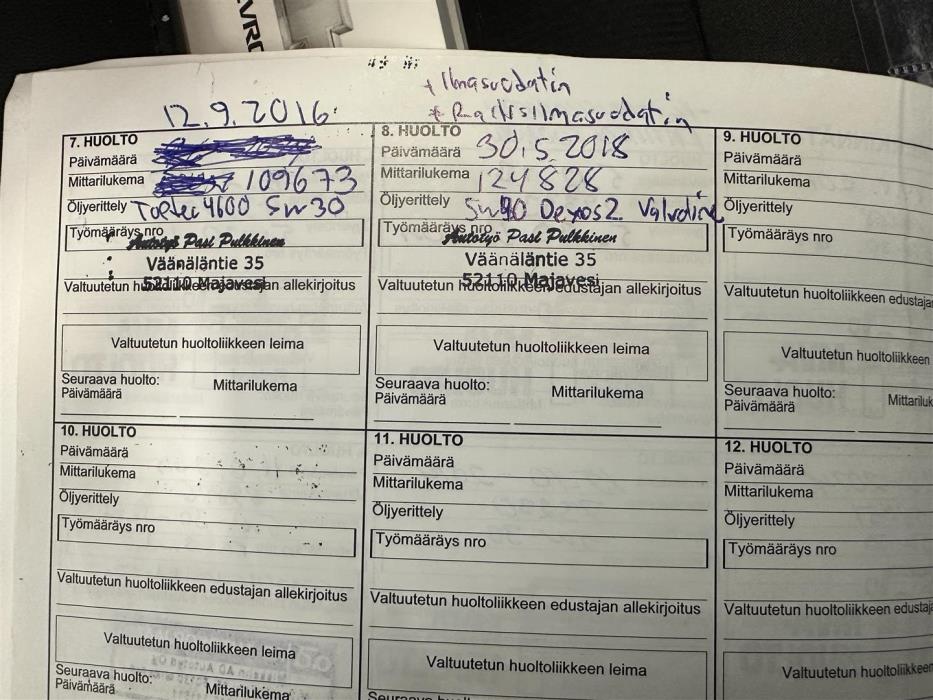 EVRO
+ Ilmasuodatin
12.9.2016
* Raitisilmasuodatin
7. HUOLTO
Päivämäärä
Mittarilukema 109673
Öljyerittely Toptec 4600 5w30
Työmääräys nro
Autotyö Pasi Pulkkinen
Väänäläntie 35
52110 Majavesi
Valtuutetun huoltoliikkeen edustajan allekirjoitus
Valtuutetun huoltoliikkeen leima
Seuraava huolto:
Päivämäärä Mittarilukema
8. HUOLTO
Päivämäärä 30.5.2018
Mittarilukema 124828
Öljyerittely 5w30 Dexos2 Valvoline
Työmääräys nro
Autotyö Pasi Pulkkinen
Väänäläntie 35
52110 Majavesi
Valtuutetun huoltoliikkeen edustajan allekirjoitus
Valtuutetun huoltoliikkeen leima
Seuraava huolto:
Päivämäärä Mittarilukema
9. HUOLTO
Päivämäärä
Mittarilukema
Öljyerittely
Työmääräys nro
Valtuutetun huoltoliikkeen edustaja
Valtuutetun huoltoliikkeen
Seuraava huolto:
Päivämäärä Mittariluk
10. HUOLTO
Päivämäärä
Mittarilukema
Öljyerittely
Työmääräys nro
Valtuutetun huoltoliikkeen edustajan allekirjoitus
Valtuutetun huoltoliikkeen leima
Seuraava huolto:
Päivämäärä Mittarilukema
11. HUOLTO
Päivämäärä
Mittarilukema
Öljyerittely
Työmääräys nro
Valtuutetun huoltoliikkeen edustajan allekirjoitus
Valtuutetun huoltoliikkeen leima
Seuraava huolto:
12. HUOLTO
Päivämäärä
Mittarilukema
Öljyerittely
Työmääräys nro
Valtuutetun huoltoliikkeen edustaja
Valtuutetun huoltoliikkeen